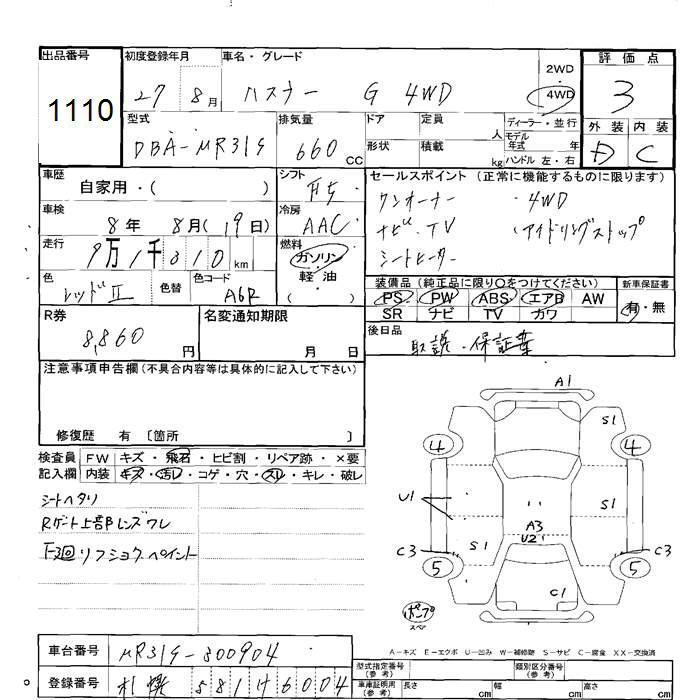 出品番号
1110
初度登録年月
27 8月
車名・グレード
ハスラー G 4WD
2WD
4WD
評価点
3
外装 内装
D C
型式
DBA-MR31S
排気量
660 CC
ドア
形状
定員
人
積載
kg
ディーラー・並行
モデル年式 年
ハンドル 左・右
車歴
自家用・( )
シフト
車検
8年 8月(19日)
冷房
AAC
走行
9万1千310km
燃料
ガソリン
軽・油
( )
色
レッドⅡ
色替
色コード
A6R
セールスポイント (正常に機能するものに限ります)
ワンオーナー ・4WD
ナビ・TV ・アイドリングストップ
シートヒーター
装備品 (純正品に限り○をつけてください)
PS PW ABS エアB AW
SR ナビ TV カワ
新車保証書
有・無
R券
8,860円
名変通知期限
月 日
後日品
取説・保証書
注意事項申告欄(不具合内容等は具体的に記入して下さい)
修復歴 有 〔箇所 〕
検査員記入欄
FW キズ・飛石・ヒビ割・リペア跡・×要
内装 キズ・汚レ・コゲ・穴・スリ・キレ・破レ
シートヘタリ
Rゲート上部レンズワレ
下廻リフショクペイント
A1
S1
4 4
U1
S1
A3
U2
S1
C3 C3
5 5
C1
ポンプ
スペア
A-キズ E-エクボ U-凹み W-補修跡 S-サビ C-腐食 XX-交換済
車台番号
MR31S-300904
登録番号
札幌 581 け 6004
型式指定番号
(参考)
類別区分番号
(参考)
車庫証明用
(参考)
長さ cm 幅 cm 高さ cm